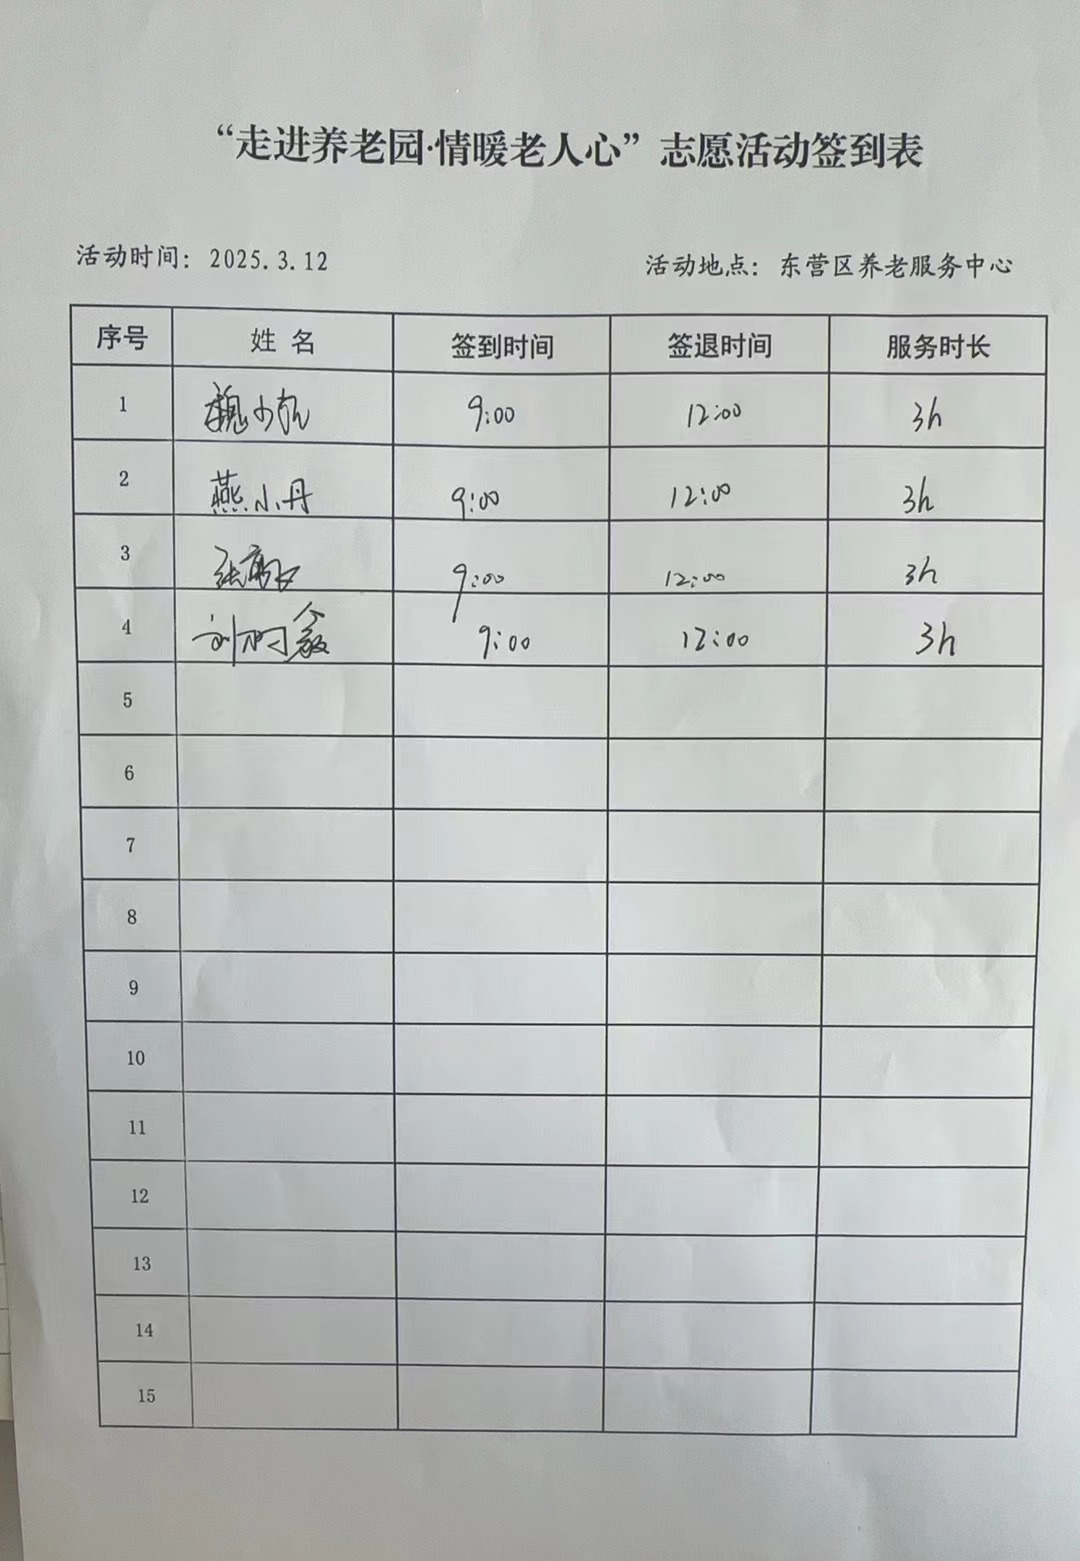 “走进养老园·情暖老人心”志愿活动签到表
活动时间：2025.3.12 活动地点：东营区养老服务中心
序号 姓名 签到时间 签退时间 服务时长
1 魏少 9:00 12:00 3h
2 燕小丹 9:00 12:00 3h
3 张 9:00 12:00 3h
4 刘 9:00 12:00 3h
5
6
7
8
9
10
11
12
13
14
15